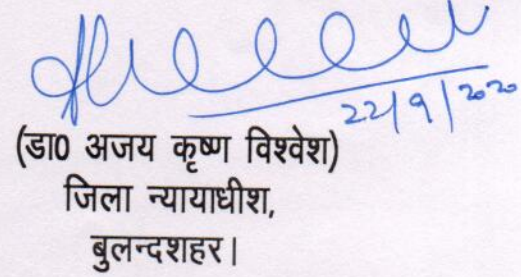 22/9/2020
(डा0 अजय कृष्ण विश्वेश)
जिला न्यायाधीश,
बुलन्दशहर।